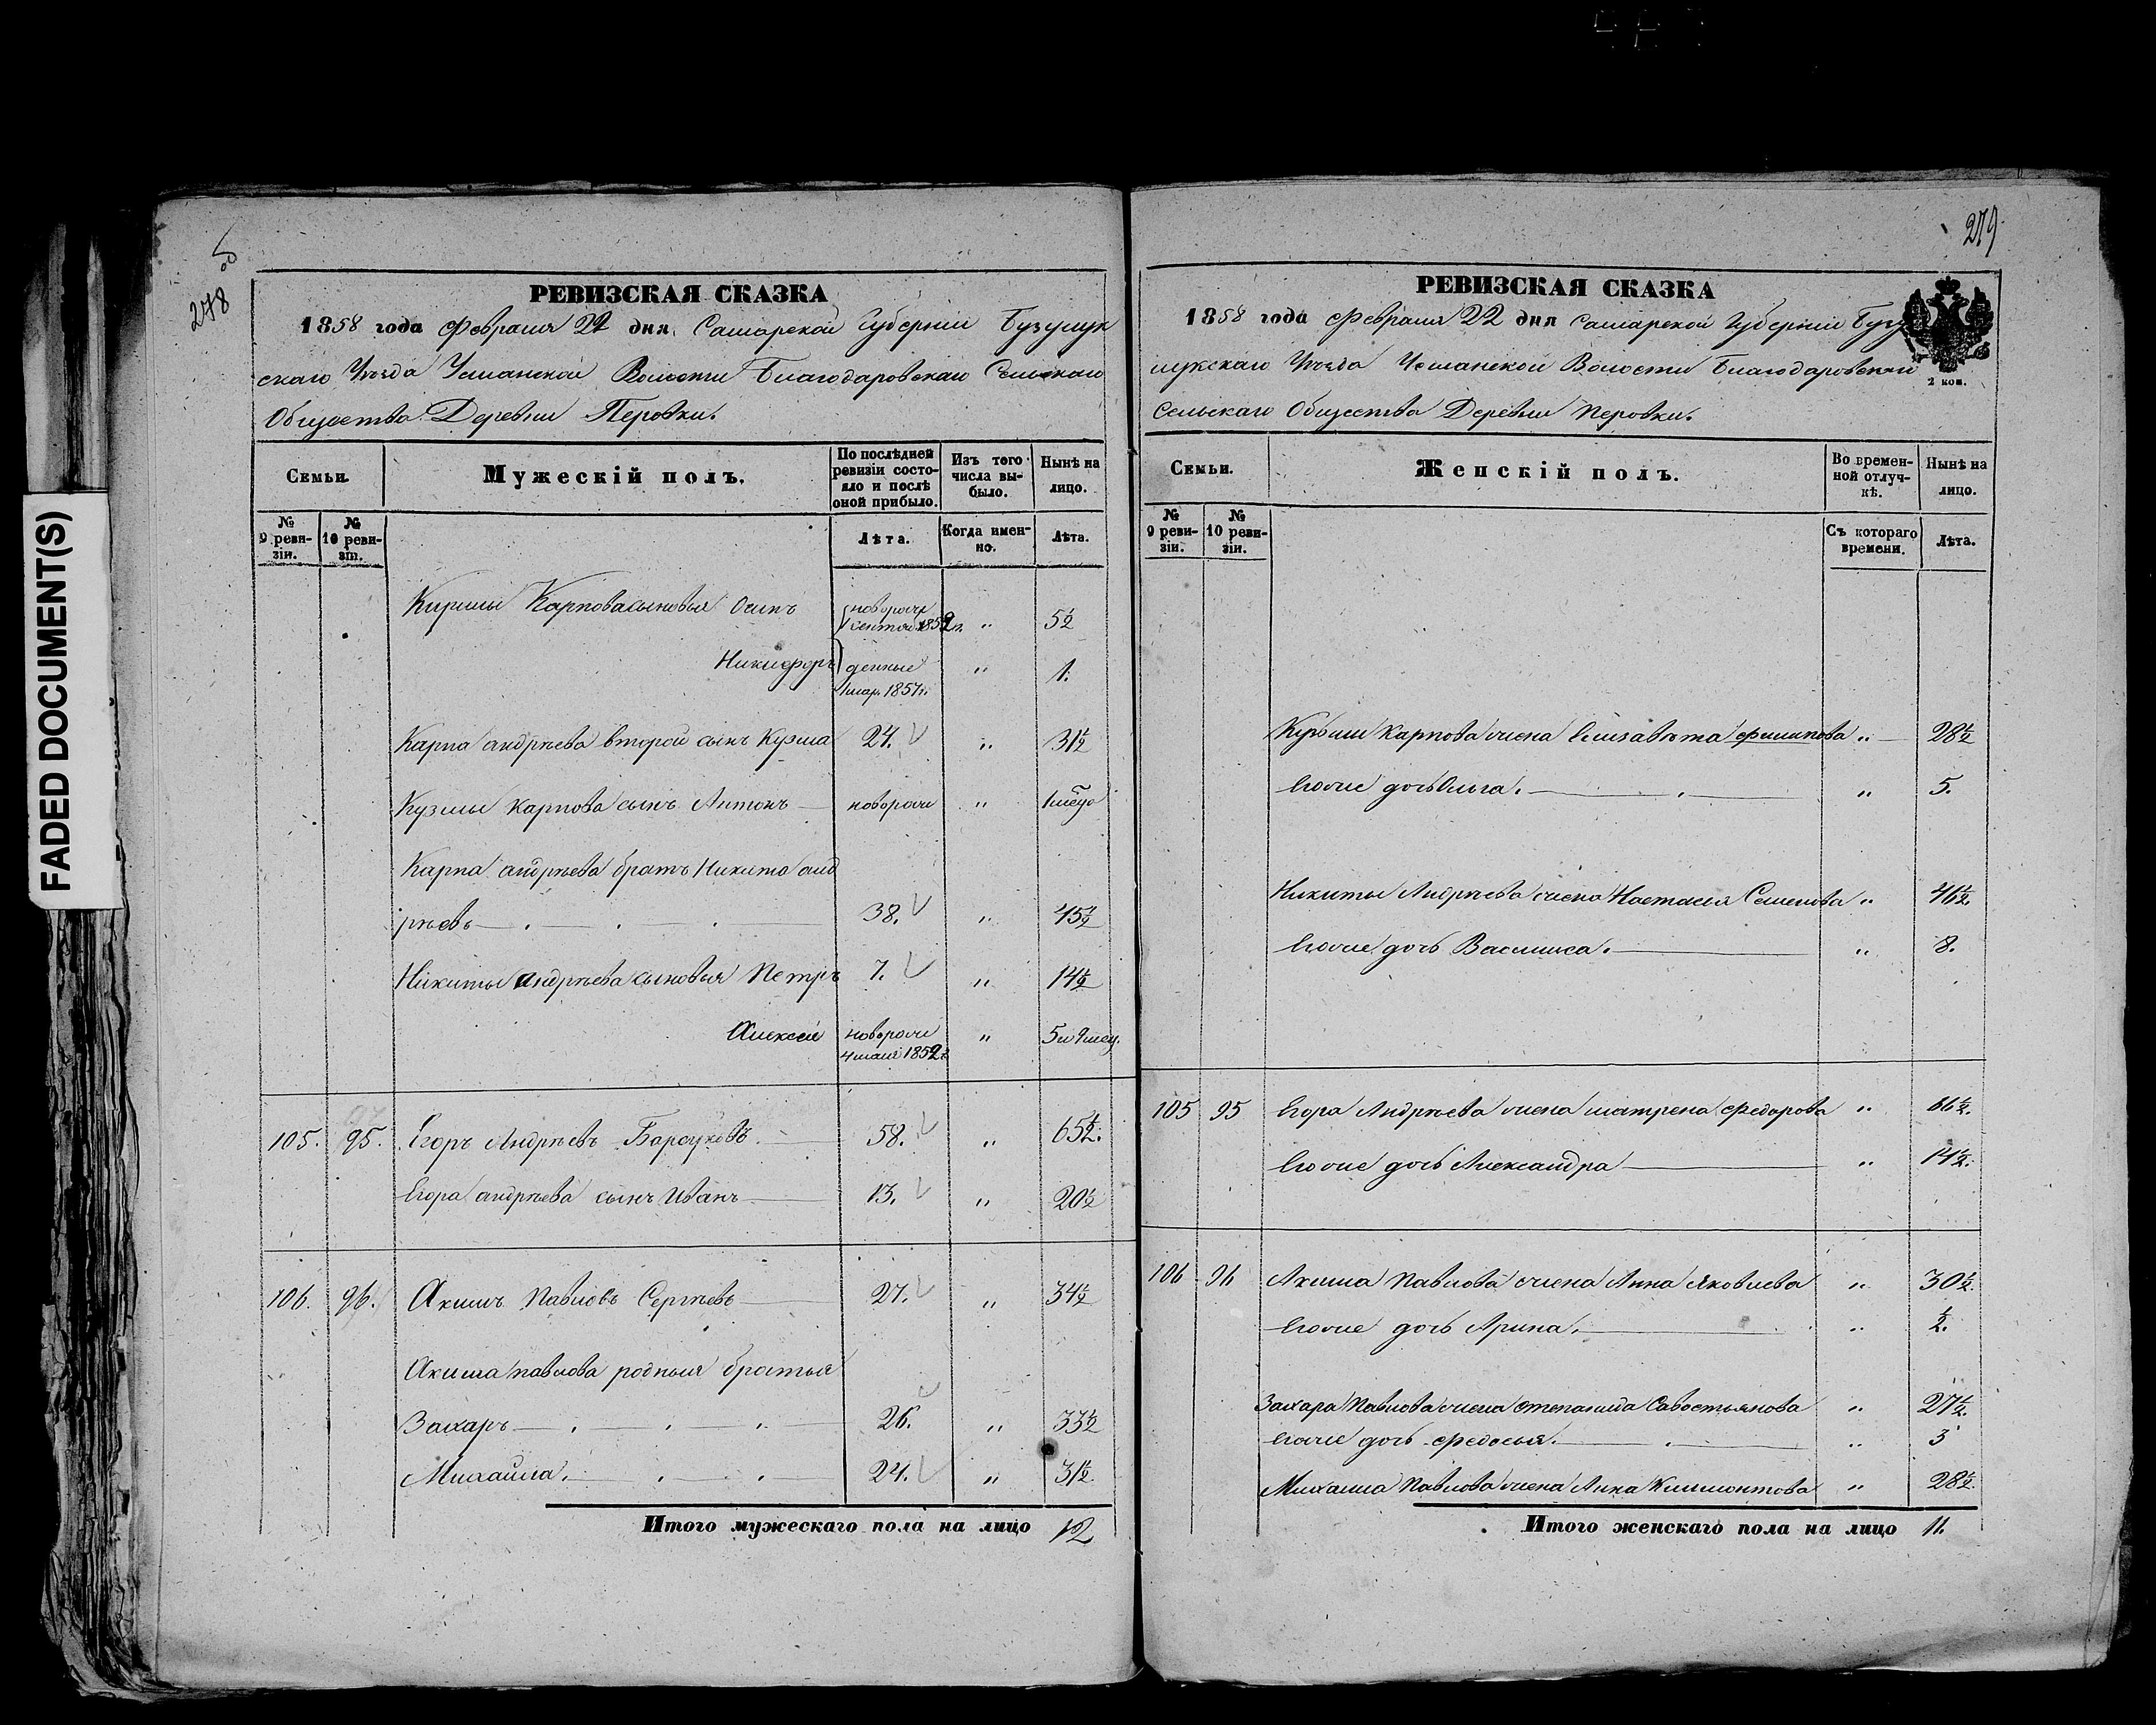 FADED DOCUMENT(S)
278
РЕВИЗСКАЯ СКАЗКА
1858 года Февраля 22 дня Самарской Губернии Бузулук
скаго Уезда Усманской Волости Благодаровскаго Сельскаго
Общества Деревни Перовки.
Семьи.
Мужескій полъ.
По послѣдней ревизіи состояло и послѣ оной прибыло.
Изъ того числа выбыло.
Нынѣ на лицо.
№ 9 ревизіи.
№ 10 ревизіи.
Лѣта.
Когда именно.
Лѣта.
Карпова сыновья Осипъ новорож сентя 1852 г. " 5½
Никифоръ денные 1 мар. 1857 г. " 1.
Карпа андрѣева второй сынъ Кузма 24. " 31½
Кузмы Карпова сынъ Антонъ новорож "
Карпа андрѣева братъ Никита анд
рѣевъ 38. " 45½
Никиты андрѣева сыновья Петръ 7. " 14½
Алексей новорож 4 мая 1852 г. " 5 и 9 мес.
105. 95. Егоръ Андрѣевъ Барсуковъ 58. " 65½.
Егора андрѣева сынъ Иванъ 13. " 20½
106. 96. Акимъ Павловъ Сергѣевъ 27. " 34½
Акима павлова родныя братья
Захаръ 26. " 33½
Михайла. 24. " 31½.
Итого мужескаго пола на лицо 12
279
РЕВИЗСКАЯ СКАЗКА
1858 года Февраля 22 дня Самарской Губернии Бузу
лукскаго Уезда Усманской Волости Благодаровскаго
2 коп.
Сельскаго Общества Деревни Перовки.
Семьи.
Женскій полъ.
Во временной отлучкѣ.
Нынѣ на лицо.
№ 9 ревизіи.
№ 10 ревизіи.
Съ котораго времени.
Лѣта.
Кузьмы Карпова жена Елизавѣта Филипова " 28½
Егоже дочь Ольга. " 5.
Никиты Андрѣева жена Настасья Семенова " 46½.
Егоже дочь Василиса. " 8.
105 95 Егора Андрѣева жена матрена Федорова " 66½.
Егоже дочь Александра " 14½.
106 96 Акима Павлова жена Анна Яковлева " 30½.
Егоже дочь Арина. " ½.
Захара Павлова жена степанида Савостьянова " 27½.
Егоже дочь Федосья. " 3
Михаила Павлова жена Анна Климонтова " 28½.
Итого женскаго пола на лицо 11.